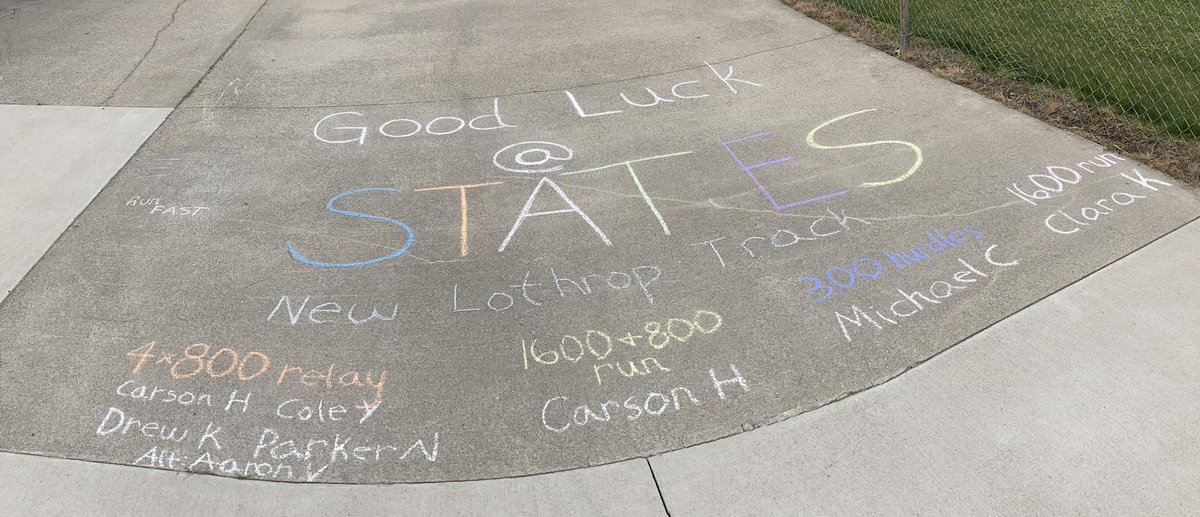 Good Luck
@
STATES
Run
FAST
New Lothrop Track
4x800 relay
Carson H Cole Y
Drew K Parker N
Alt-Aaron V
1600+800
run
Carson H
300 hurdles
Michael C
1600 run
Clara K